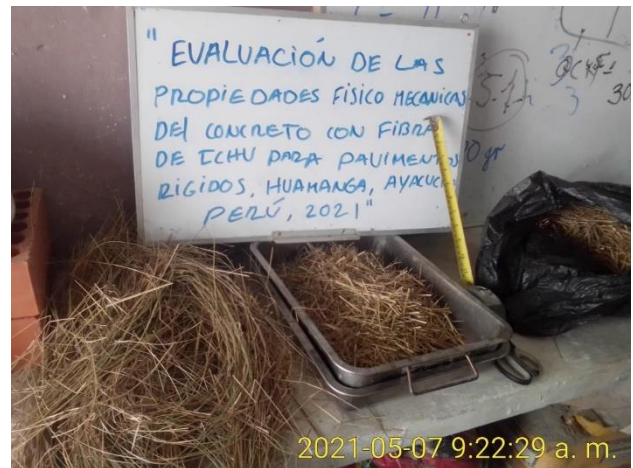 "EVALUACIÓN DE LAS
PROPIEDADES FÍSICO MECANICAS
DEL CONCRETO CON FIBRA
DE ICHU PARA PAVIMENTOS
RIGIDOS, HUAMANGA, AYACUCH
PERÚ, 2021"
30
gr
2021-05-07 9:22:29 a. m.